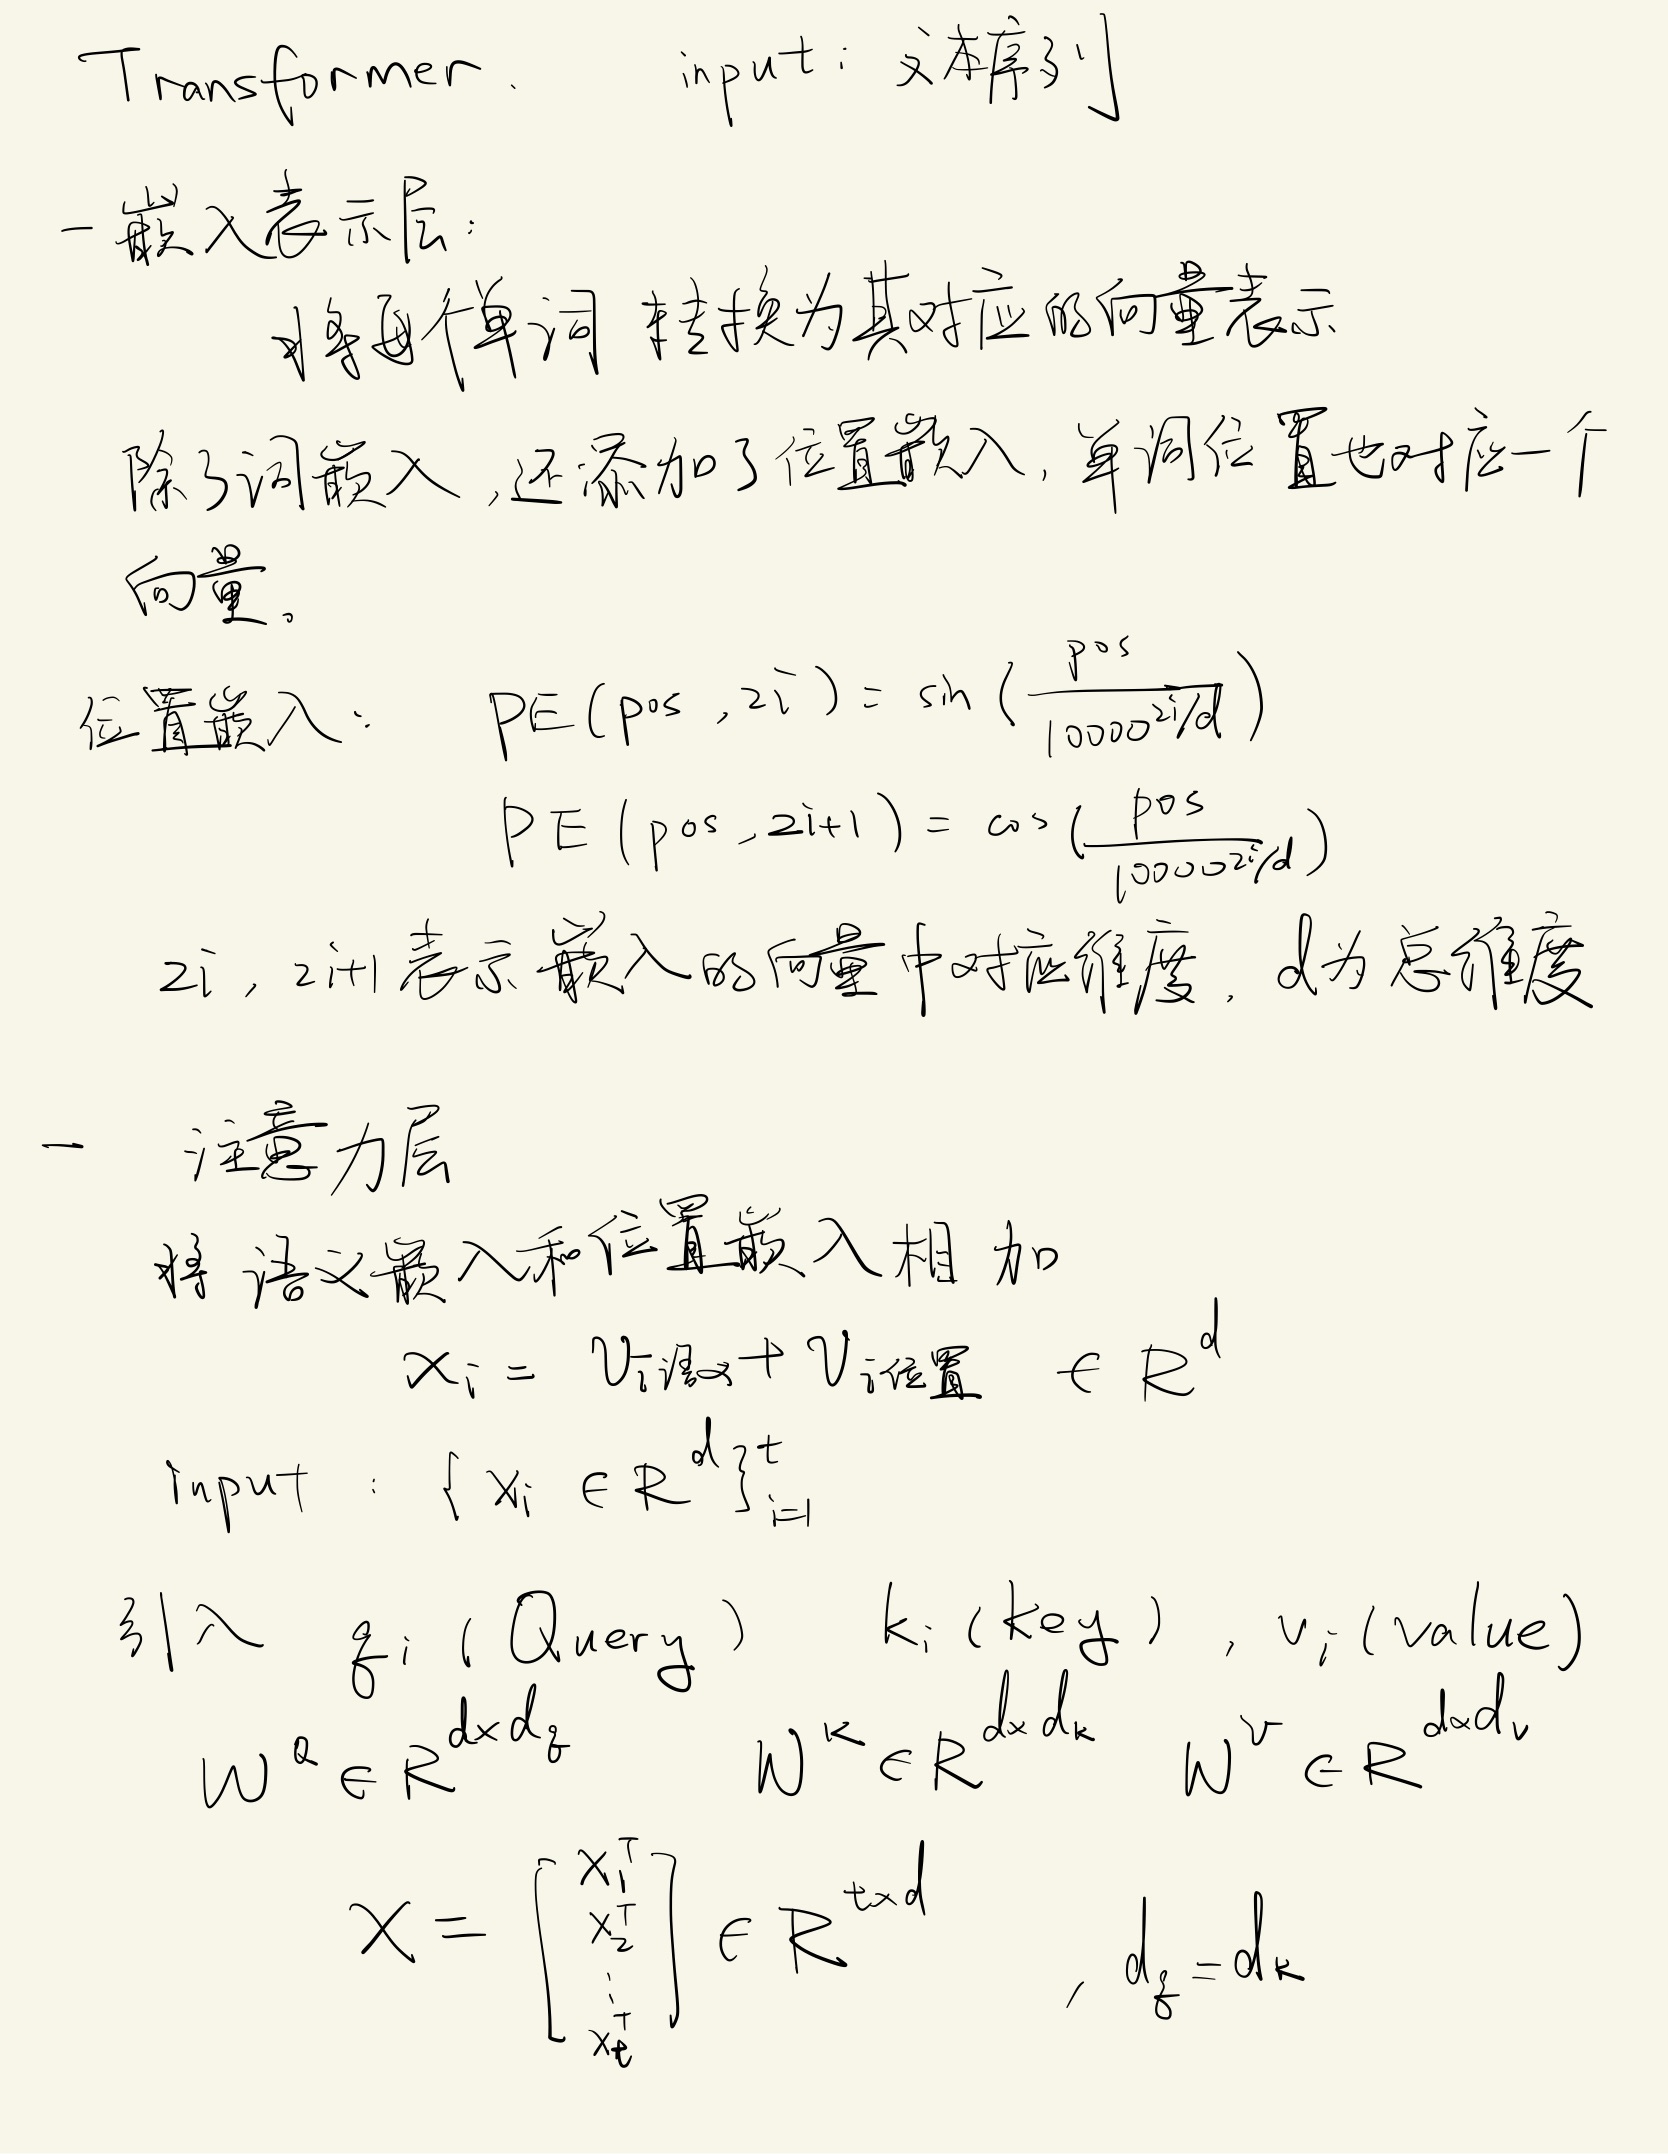 Transformer. input: 文本序列
- 嵌入表示层:
将每个单词 转换为其对应的向量表示
除了词嵌入,还添加了位置嵌入,单词位置也对应一个
向量。
位置嵌入: PE(pos,2i) = sin(pos/10000^{2i/d})
PE(pos,2i+1) = cos(pos/10000^{2i/d})
2i, 2i+1 表示嵌入的向量中对应维度, d为总维度
- 注意力层
将语义嵌入和位置嵌入相加
x_i = v_{i语义} + v_{i位置} ∈ R^d
input : {x_i ∈ R^d}_{i=1}^t
引入 q_i (Query) k_i (key), v_i (value)
W^Q ∈ R^{d×d_q} W^K ∈ R^{d×d_k} W^v ∈ R^{d×d_v}
X = [x_1^T x_2^T ⋮ x_t^T] ∈ R^{t×d} , d_q = d_k